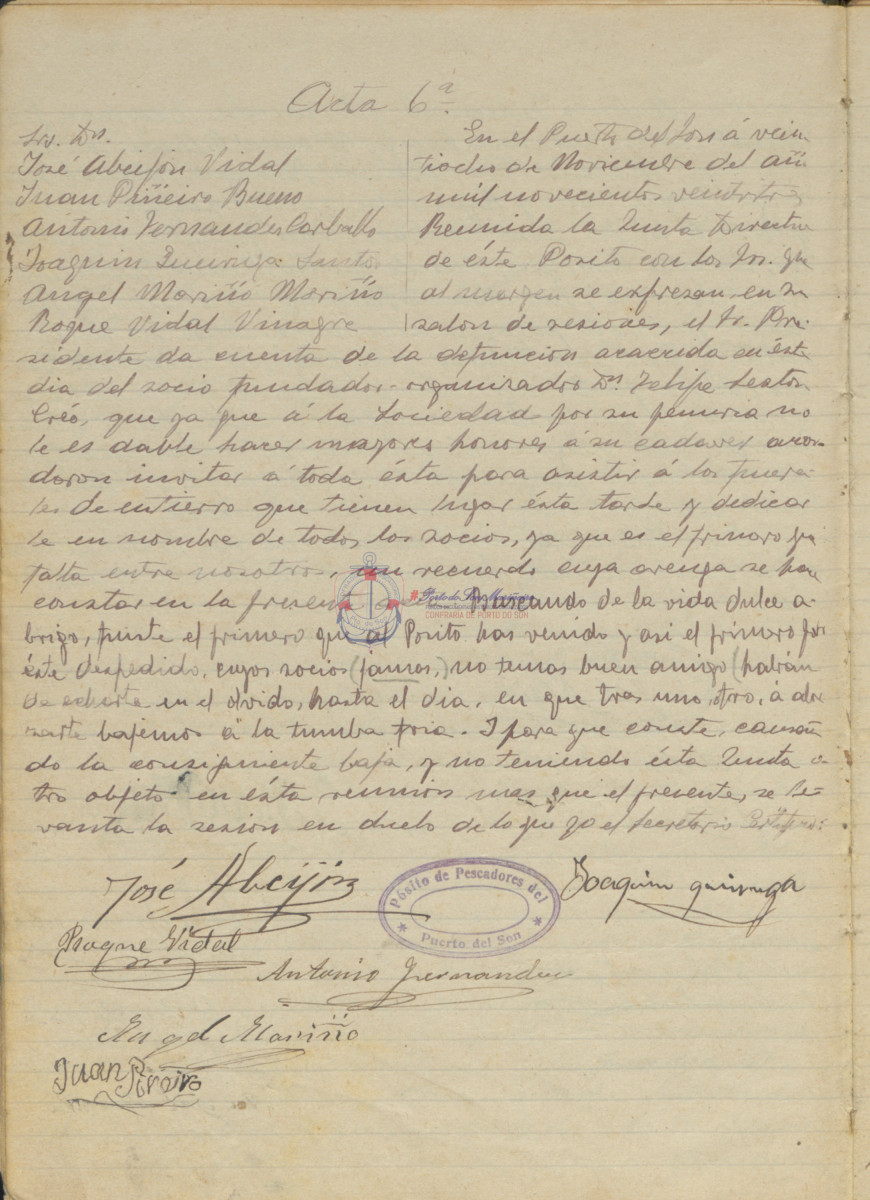 Acta 6ª
Srs. Dn.
José Abeijón Vidal
Juan Piñeiro Bueno
Antonio Fernandez Carballo
Joaquin Queiruga Santos
Angel Mariño Mariño
Roque Vidal Vinagre
En el Puerto del Son á vein
tiocho de Noviembre del año
mil novecientos veintitres
Reunida la Junta Directiva
de éste Posito con los Srs. que
al margen se expresan, en su
salon de sesiones, el Sr. Pre-
sidente da cuenta de la defuncion acaecida en éste
dia del socio fundador-organizador Dn. Felipe
Creo, que ya que á la Sociedad por su penuria no
le es dable hacer mayores honores á su cadaver acor-
daron invitar á toda ésta para asistir á los funera-
les de entierro que tienen lugar ésta tarde y dedicar
le en nombre de todos los socios, ya que es el primero que
falta entre nosotros, un recuerdo cuya arenga se hace
constar en la presente Buscando de la vida dulce a-
brigo, fuiste el primero que al Posito has venido y asi el primero por
éste despedido, cuyos socios (jamas,) no temas buen amigo (habrán
de echarte en el olvido, hasta el dia, en que tras uno, otro, á
bajemos á la tumba fria. I para que conste, causan
do la consiguiente baja, y no teniendo ésta Junta o-
tro objeto en ésta reunion mas que el presente, se le-
vanta la sesion en duelo de lo que yo el Secretario Certifico:
José Abeijón
Pósito de Pescadores del
Puerto del Son
Joaquin queiruga
Roque Vidal
Antonio Fernandez
Angel Mariño
Juan Piñeiro
CONFRARÍA DE PORTO DO SON